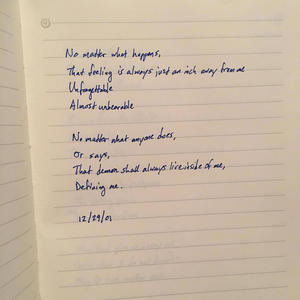 No matter what happens,
That feeling is always just an inch away from me
Unforgettable
Almost unbearable
No matter what anyone does,
Or says,
That demon shall always live inside of me,
Defining me.
12/29/01